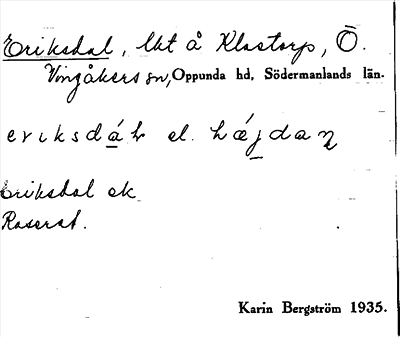 Eriksdal, lht å Klastorp, Ö.
Vingåkers sn, Oppunda hd, Södermanlands län.
eriksdáɫ el. hǽjdaɳ
Eriksdal ek
Roserat.
Karin Bergström 1935.